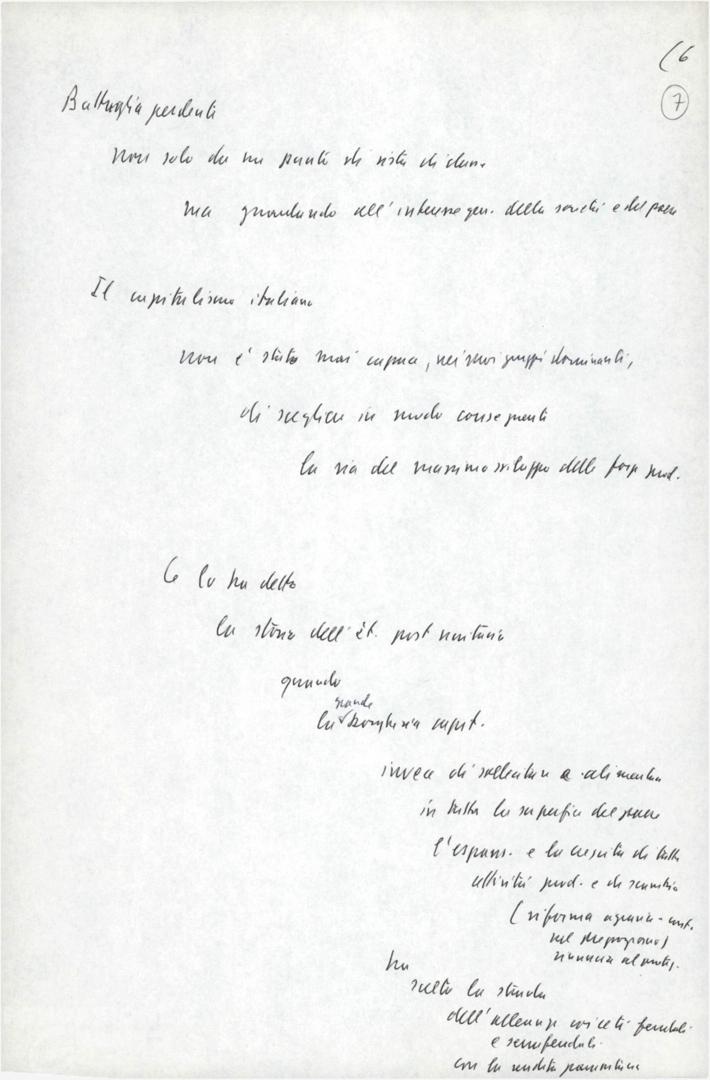 (6
7
Battaglia perdenti
non solo da un punto di vista di classe
ma guardando all'interesse gen. della società e del paese
Il capitalismo italiano
non è stato mai capace, nei suoi gruppi dominanti,
di scegliere in modo conseguente
la via del massimo sviluppo delle forze prod.
Ce lo ha detto
la storia dell'It. post unitaria
quando
grande
la borghesia capit.
invece di sollecitare e alimentare
in tutta la superficie del paese
l'espans. e la crescita di tutte
attività prod. e di scambio
(riforma agraria - cont.
nel
rinuncia al
ha
scelto la strada
dell'alleanza con ceti feudali
e semifeudali
con la rendita parassitaria